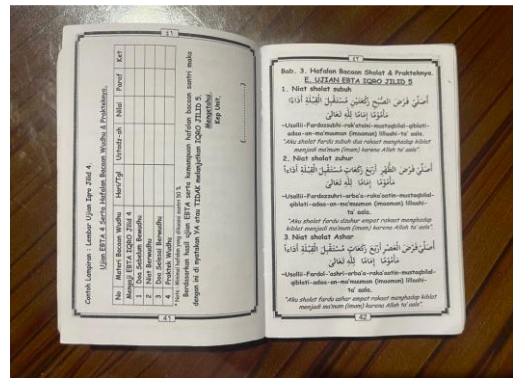 Contoh Lampiran : Lembar Ujian Iqro Jilid 4.
Ujian EBTA 4 Serta Hafalan Bacaan Wudhu & Prakteknya.
No Materi Bacaan Wudhu Hari/Tgl Ustadz-ah Nilai Paraf Ket
Mengaji EBTA IQRO Jilid 4
1 Doa Sebelum Berwudhu
2 Niat Berwudhu
3 Doa Selesai Berwudhu
4 Praktek Wudhu
Berdasarkan hasil ujian EBTA serta kemampuan hafalan bacaan santri maka
dengan ini di nyatakan YA atau TIDAK melanjutkan IQRO JILID 5.
Mengetahui,
Kep Unit.
(..................)
41
Bab. 3. Hafalan Bacaan Sholat & Prakteknya.
E. UJIAN EBTA IQRO JILID 5
1. Niat sholat subuh
أُصَلِّيْ فَرْضَ الصُّبْحِ رَكْعَتَيْنِ مُسْتَقْبِلَ الْقِبْلَةِ أَدَاءً
مَأْمُوْمًا إِمَامًا لِلّٰهِ تَعَالَى
-Usollii-Fardazsubhi-rok'ataini-mustaqbilal-qiblati-
adaa-an-ma'muuman (imaaman) lillaahi-ta' aala.
"Aku sholat fardu subuh dua rakaat menghadap kiblat
menjadi ma'mum (imam) karena Allah ta' aala".
2. Niat sholat zuhur
أُصَلِّيْ فَرْضَ الظُّهْرِ أَرْبَعَ رَكَعَاتٍ مُسْتَقْبِلَ الْقِبْلَةِ أَدَاءً
مَأْمُوْمًا إِمَامًا لِلّٰهِ تَعَالَى
-Usollii-Fardazzuhri-arba'a-raka'aatin-mustaqbilal-
qiblati-adaa-an-ma'muuman (imaaman) lillaahi-
ta' aala.
"Aku sholat fardu dzuhur empat rakaat menghadap
kiblat menjadi ma'mum (imam) karena Allah ta' aala".
3. Niat sholat Ashar
أُصَلِّيْ فَرْضَ الْعَصْرِ أَرْبَعَ رَكَعَاتٍ مُسْتَقْبِلَ الْقِبْلَةِ أَدَاءً
مَأْمُوْمًا إِمَامًا لِلّٰهِ تَعَالَى
-Usollii-Fardol-'ashri-arba'a-raka'aatin-mustaqbilal-
qiblati-adaa-an-ma'muuman (imaaman) lillaahi-
ta' aala.
"Aku sholat fardu ashar empat rakaat menghadap kiblat
menjadi ma'mum (imam) karena Allah ta' aala".
42